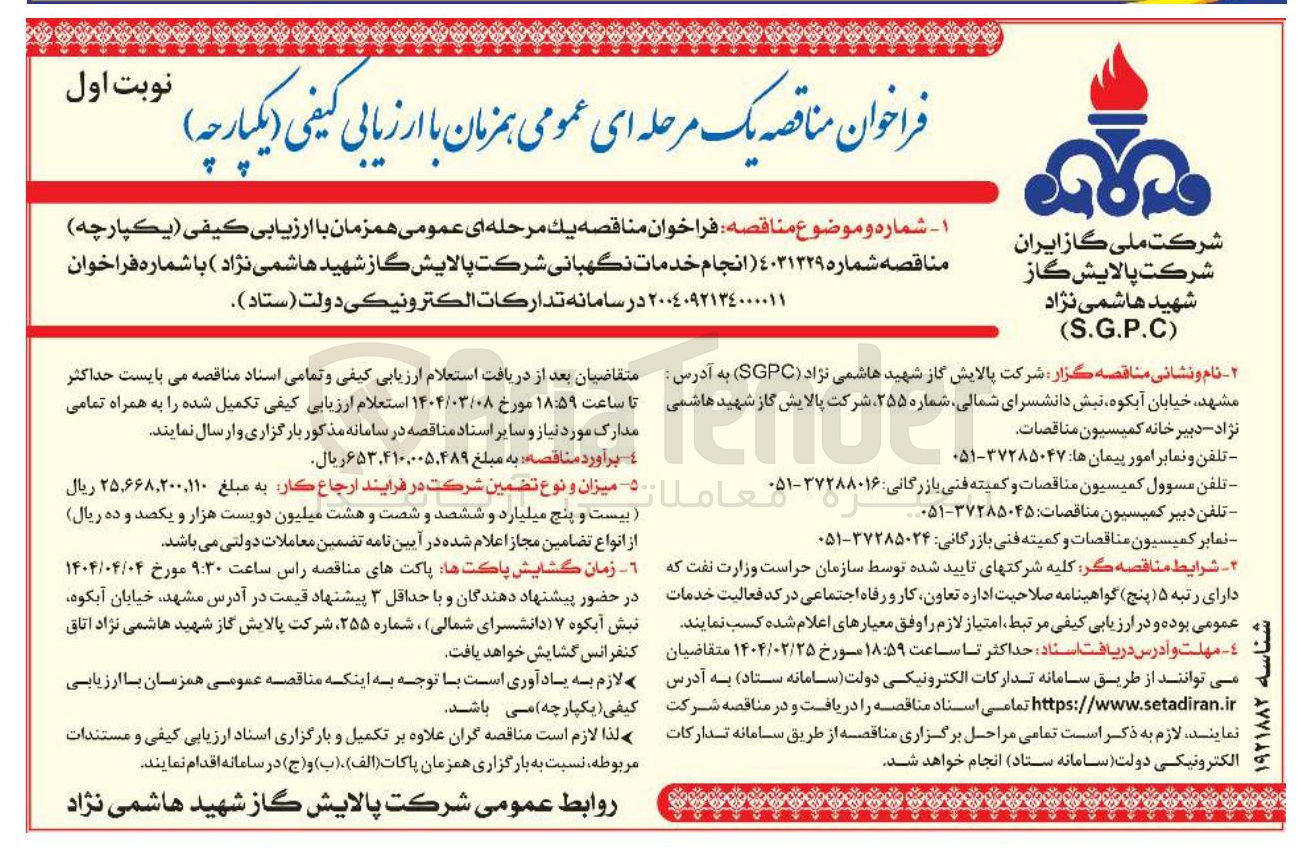 نوبت اول
فراخوان مناقصه یک مرحله ای عمومی همزمان با ارزیابی کیفی (یکپارچه)
شرکت ملی گاز ایران
شرکت پالایش گاز
شهید هاشمی نژاد
(S.G.P.C)
۱- شماره و موضوع مناقصه: فراخوان مناقصه یك مرحله‌ای عمومی همزمان با ارزیابی کیفی (یکپارچه)
مناقصه شماره ٤٠٣١٣٢٩ (انجام خدمات نگهبانی شرکت پالایش گاز شهید هاشمی نژاد) با شماره فراخوان
٢٠٠٤٠٩٢١٣٤٠٠٠٠١١ در سامانه تدارکات الکترونیکی دولت (ستاد).
۲- نام و نشانی مناقصه گزار: شرکت پالایش گاز شهید هاشمی نژاد (SGPC) به آدرس :
مشهد، خیابان آبکوه، نبش دانشسرای شمالی، شماره ۲۵۵، شرکت پالایش گاز شهید هاشمی
نژاد–دبیر خانه کمیسیون مناقصات.
- تلفن و نمابر امور پیمان ها: ۳۷۲۸۵۰۴۷-۰۵۱
- تلفن مسوول کمیسیون مناقصات و کمیته فنی بازرگانی: ۳۷۲۸۸۰۱۶-۰۵۱
- تلفن دبیر کمیسیون مناقصات: ۳۷۲۸۵۰۴۵-۰۵۱
- نمابر کمیسیون مناقصات و کمیته فنی بازرگانی: ۳۷۲۸۵۰۲۴-۰۵۱
۳- شرایط مناقصه گر: کلیه شرکتهای تایید شده توسط سازمان حراست وزارت نفت که
دارای رتبه ۵ (پنج) گواهینامه صلاحیت اداره تعاون، کار و رفاه اجتماعی در کد فعالیت خدمات
عمومی بوده و در ارزیابی کیفی مرتبط، امتیاز لازم را وفق معیارهای اعلام شده کسب نمایند.
٤- مهلت و آدرس دریافت اسناد: حداکثر تا ساعت ۱۸:۵۹ مورخ ۱۴۰۴/۰۲/۲۵ متقاضیان
می توانند از طریق سامانه تدارکات الکترونیکی دولت(سامانه ستاد) به آدرس
https://www.setadiran.ir تمامی اسناد مناقصه را دریافت و در مناقصه شرکت
نمایند، لازم به ذکر است تمامی مراحل برگزاری مناقصه از طریق سامانه تدارکات
الکترونیکی دولت(سامانه ستاد) انجام خواهد شد.
متقاضیان بعد از دریافت استعلام ارزیابی کیفی وتمامی اسناد مناقصه می بایست حداکثر
تا ساعت ۱۸:۵۹ مورخ ۱۴۰۴/۰۳/۰۸ استعلام ارزیابی کیفی تکمیل شده را به همراه تمامی
مدارک مورد نیاز و سایر اسناد مناقصه در سامانه مذکور بارگزاری و ارسال نمایند.
٤- برآورد مناقصه: به مبلغ ۶۵۳,۴۱۰,۰۰۵,۴۸۹ ریال.
٥- میزان و نوع تضمین شرکت در فرایند ارجاع کار: به مبلغ ۲۵,۶۶۸,۲۰۰,۱۱۰ ریال
(بیست و پنج میلیارد و ششصد و شصت و هشت میلیون دویست هزار و یکصد و ده ریال)
از انواع تضامین مجاز اعلام شده در آیین نامه تضمین معاملات دولتی می باشد.
٦- زمان گشایش پاکت ها: پاکت های مناقصه راس ساعت ۹:۳۰ مورخ ۱۴۰۴/۰۴/۰۴
در حضور پیشنهاد دهندگان و با حداقل ۳ پیشنهاد قیمت در آدرس مشهد، خیابان آبکوه،
نبش آبکوه ۷ (دانشسرای شمالی) ، شماره ۲۵۵، شرکت پالایش گاز شهید هاشمی نژاد اتاق
کنفرانس گشایش خواهد یافت.
➤لازم به یادآوری است با توجه به اینکه مناقصه عمومی همزمان با ارزیابی
کیفی(یکپارچه)می باشد.
➤لذا لازم است مناقصه گران علاوه بر تکمیل و بارگزاری اسناد ارزیابی کیفی و مستندات
مربوطه، نسبت به بارگزاری همزمان پاکات(الف)،(ب)و(ج)در سامانه اقدام نمایند.
روابط عمومی شرکت پالایش گاز شهید هاشمی نژاد
شناسه ۱۹۲۱۸۸۲
AriaTender